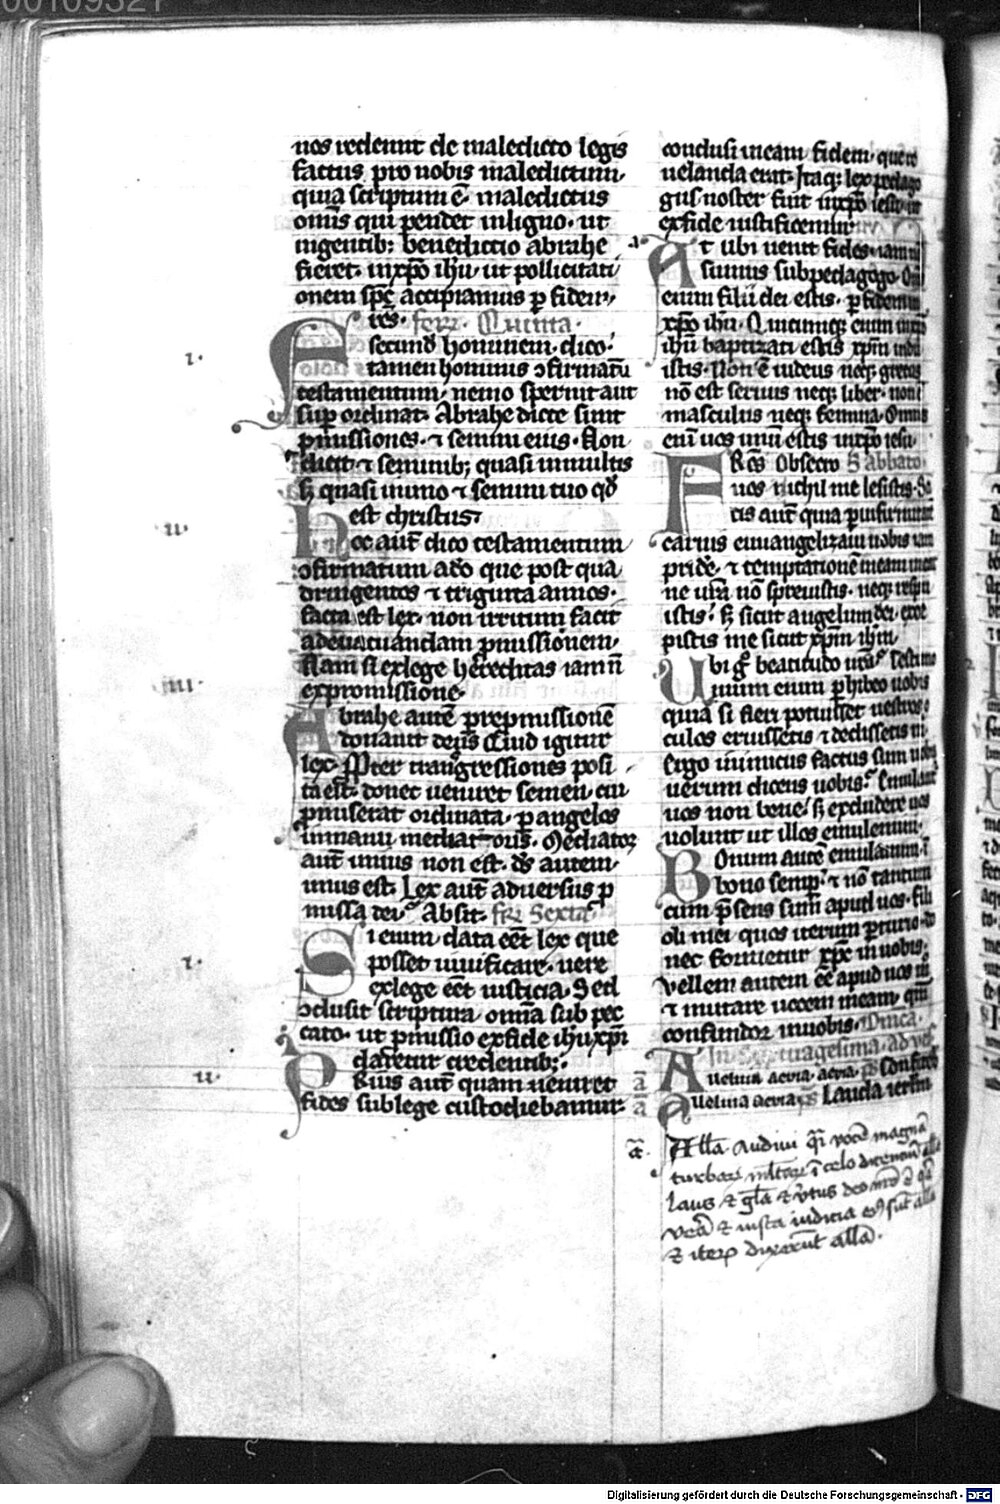 nos redemit de maledicto legis
factus pro nobis maledictum·
quia scriptum ē· maledictus
omīs qui pendet inligno· ut
ingentib; benedictio abrahe
fieret· inxp̄o ih̄u· ut pollicitati
onem sp̄c accipiamus p fidem·
Fr̄es· ferr· Quinta·
secund̄ hominem· dico·
tamen hominis ꝯfirmatū
testamentum· nemo spernit aut
sup ordinat· Abrahe dicte sunt
pmissiones· ⁊ semini eius· Non
dicit· ⁊ seminib; quasi inmultis
s; quasi inuno ⁊ semini tuo qd̄
est christus·
Hoc aut̄ dico testamentum
ꝯfirmatum adō que post qua
dringentos ⁊ triginta annos·
facta est lex· non irritum facit
adeuacuandam pmissionem·
Nam si exlege hereditas iam n̄
expromissione·
Abrahe autē prepmissionē
donauit deus Quid igitur
lex· ꝓpter trangressiones posi
ta est· donec ueniret semen· cu
pmiserat ordinata· p angelos
inmanu mediatoris· Mediator
aut̄ unius non est· d̄s autem·
unus est· Lex aut̄ aduersus p
missa dei· Absit· fr̄i Sexta
Si enim data eēt lex que
posset uiuificare· uere
exlege eēt iusticia· Sed
ꝯclusit scriptura· omīa sub pec
cato· ut pmissio exfide ih̄uxp̄i
daretur credentib;·
Prius aut̄ quam ueniret
fides sublege custodiebamur·
conclusi ineam fidem· que re
uelanda erat· Itaq; lex pedago
gus noster fuit inxp̄o iesu· ut
exfide iustificemur
At ubi uenit fides· iam n̄
sumus subpedagogo· Om̄
enim filii dei estis· p fidem in
xp̄o ih̄u· Quicumq; enim inxp̄o
ih̄u baptizati estis xp̄m indu
istis· Non ē iudeus neq; grecus
nō est seruus neq; liber· non ē
masculus neq; femina· Omīs
eni uos unū estis inxp̄o iesu·
FRēs Obsecro Sabbato
uos nichil me lesistis· Sc
itis aut̄ quia p infirmitatē
carnis euuangelizaui uobis iam
pridē· ⁊ temptationē meam incar
ne urā nō spreuistis· neq; respu
istis· s; sicut angelum dei· exce
pistis me sicut xp̄m ih̄m·
Ubi gͦ beatitudo urā· Testimo
nium enim phibeo uobis
quia si fieri potuisset uestros·
culos eruissetis ⁊ dedissetis m·
Ergo inimicus factus sum uobis
uerum dicens uobis· Emulant̄
uos non bene· s; excludere uos
uolunt ut illos emulemini·
Bonum autē emulamini· ī
bono semp· ⁊ nō tantum
cum p̄sens sum apud uos· fili
oli mei quos iterum parturio· do
nec formetur xp̄c in uobis·
Vellem autem eē apud uos m̄
⁊ mutare uocem meam· qm̄
confundor inuobis· Dnica·
In Septuagesima· ad ves
Alleluia aevia· aevia· ps Confiteb
Alleluia aevia ps Lauda ierlm
Alla Audiui qi uocē magnā
turbarum multarum ī celo dicentiū alla
Laus ⁊ gla ⁊ v̄tus deo nr̄o
⁊ iusta iudicia sūt alla
⁊ iterum dixerūt alla·
ı·
ıı·
ııı·
ı·
ıı·
Digitalisierung gefördert durch die Deutsche Forschungsgemeinschaft - DFG